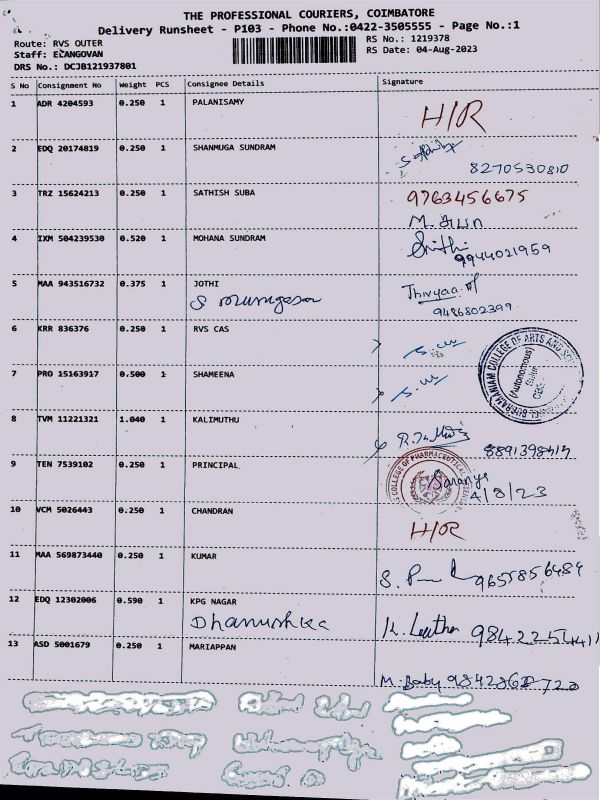 THE PROFESSIONAL COURIERS, COIMBATORE
Delivery Runsheet - P103 - Phone No.:0422-3505555 - Page No.:1
Route: RVS OUTER
RS No.: 1219378
Staff: ELANGOVAN
RS Date: 04-Aug-2023
DRS No.: DCJB121937801
S No Consignment No Weight PCS Consignee Details Signature
1 ADR 4204593 0.250 1 PALANISAMY H/R
2 EDQ 20174819 0.250 1 SHANMUGA SUNDRAM
8270530810
3 TRZ 15624213 0.250 1 SATHISH SUBA 9763456675
4 IXM 504239530 0.520 1 MOHANA SUNDRAM
9944021959
5 MAA 943516732 0.375 1 JOTHI
S Murugesan
Thivyaa
9486802399
6 KRR 836376 0.250 1 RVS CAS
COLLEGE OF ARTS AND
(Autonomous)
Sulur
7 PRO 15163917 0.500 1 SHAMEENA
8 TVM 11221321 1.040 1 KALIMUTHU
8891398413
9 TEN 7539102 0.250 1 PRINCIPAL
COLLEGE OF PHARMACEUTICAL
Saranya
4/8/23
10 VCM 5026443 0.250 1 CHANDRAN H/R
11 MAA 569873440 0.250 1 KUMAR
9655856484
12 EDQ 12302006 0.590 1 KPG NAGAR
Dhanushka
K. Leetha 9842254411
13 ASD 5001679 0.250 1 MARIAPPAN
M. Baby 9842862720